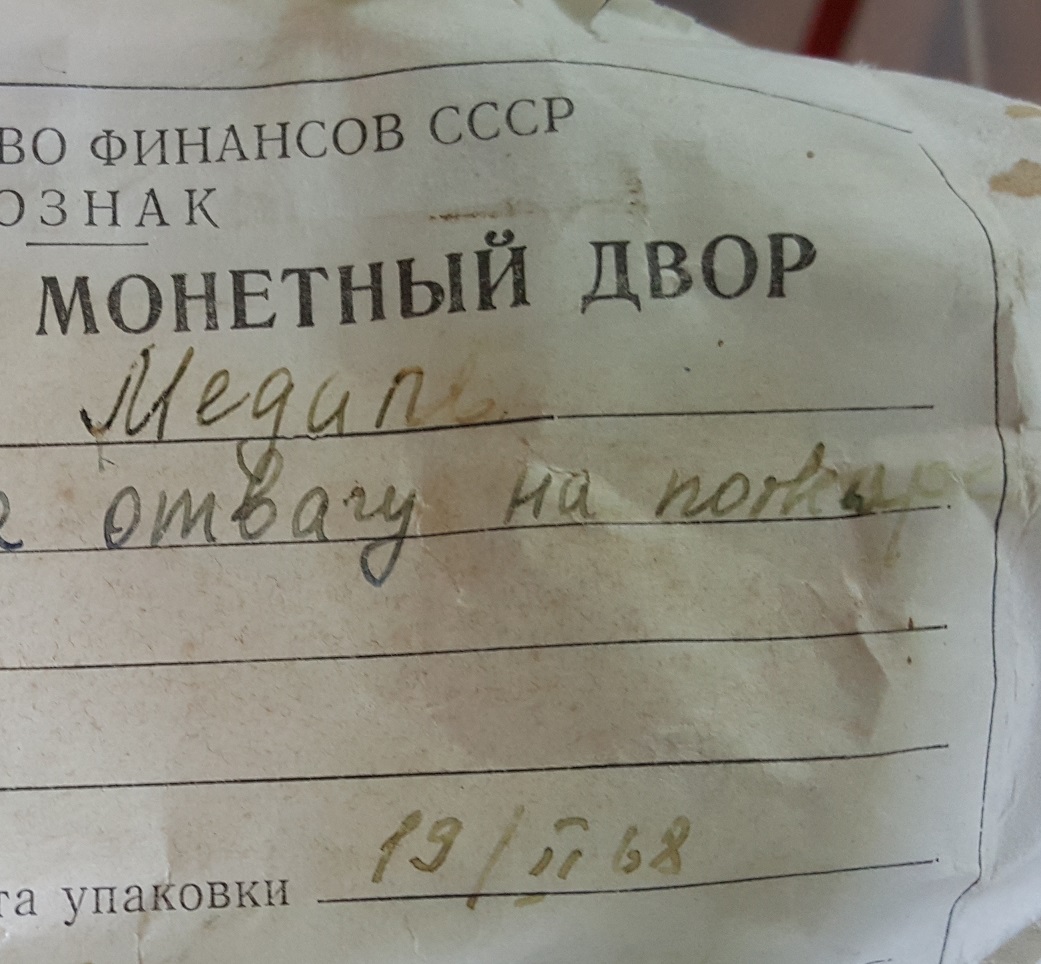 ВО ФИНАНСОВ СССР
ОЗНАК
МОНЕТНЫЙ ДВОР
Медаль
а отвагу на пожаре
та упаковки 19/II 68